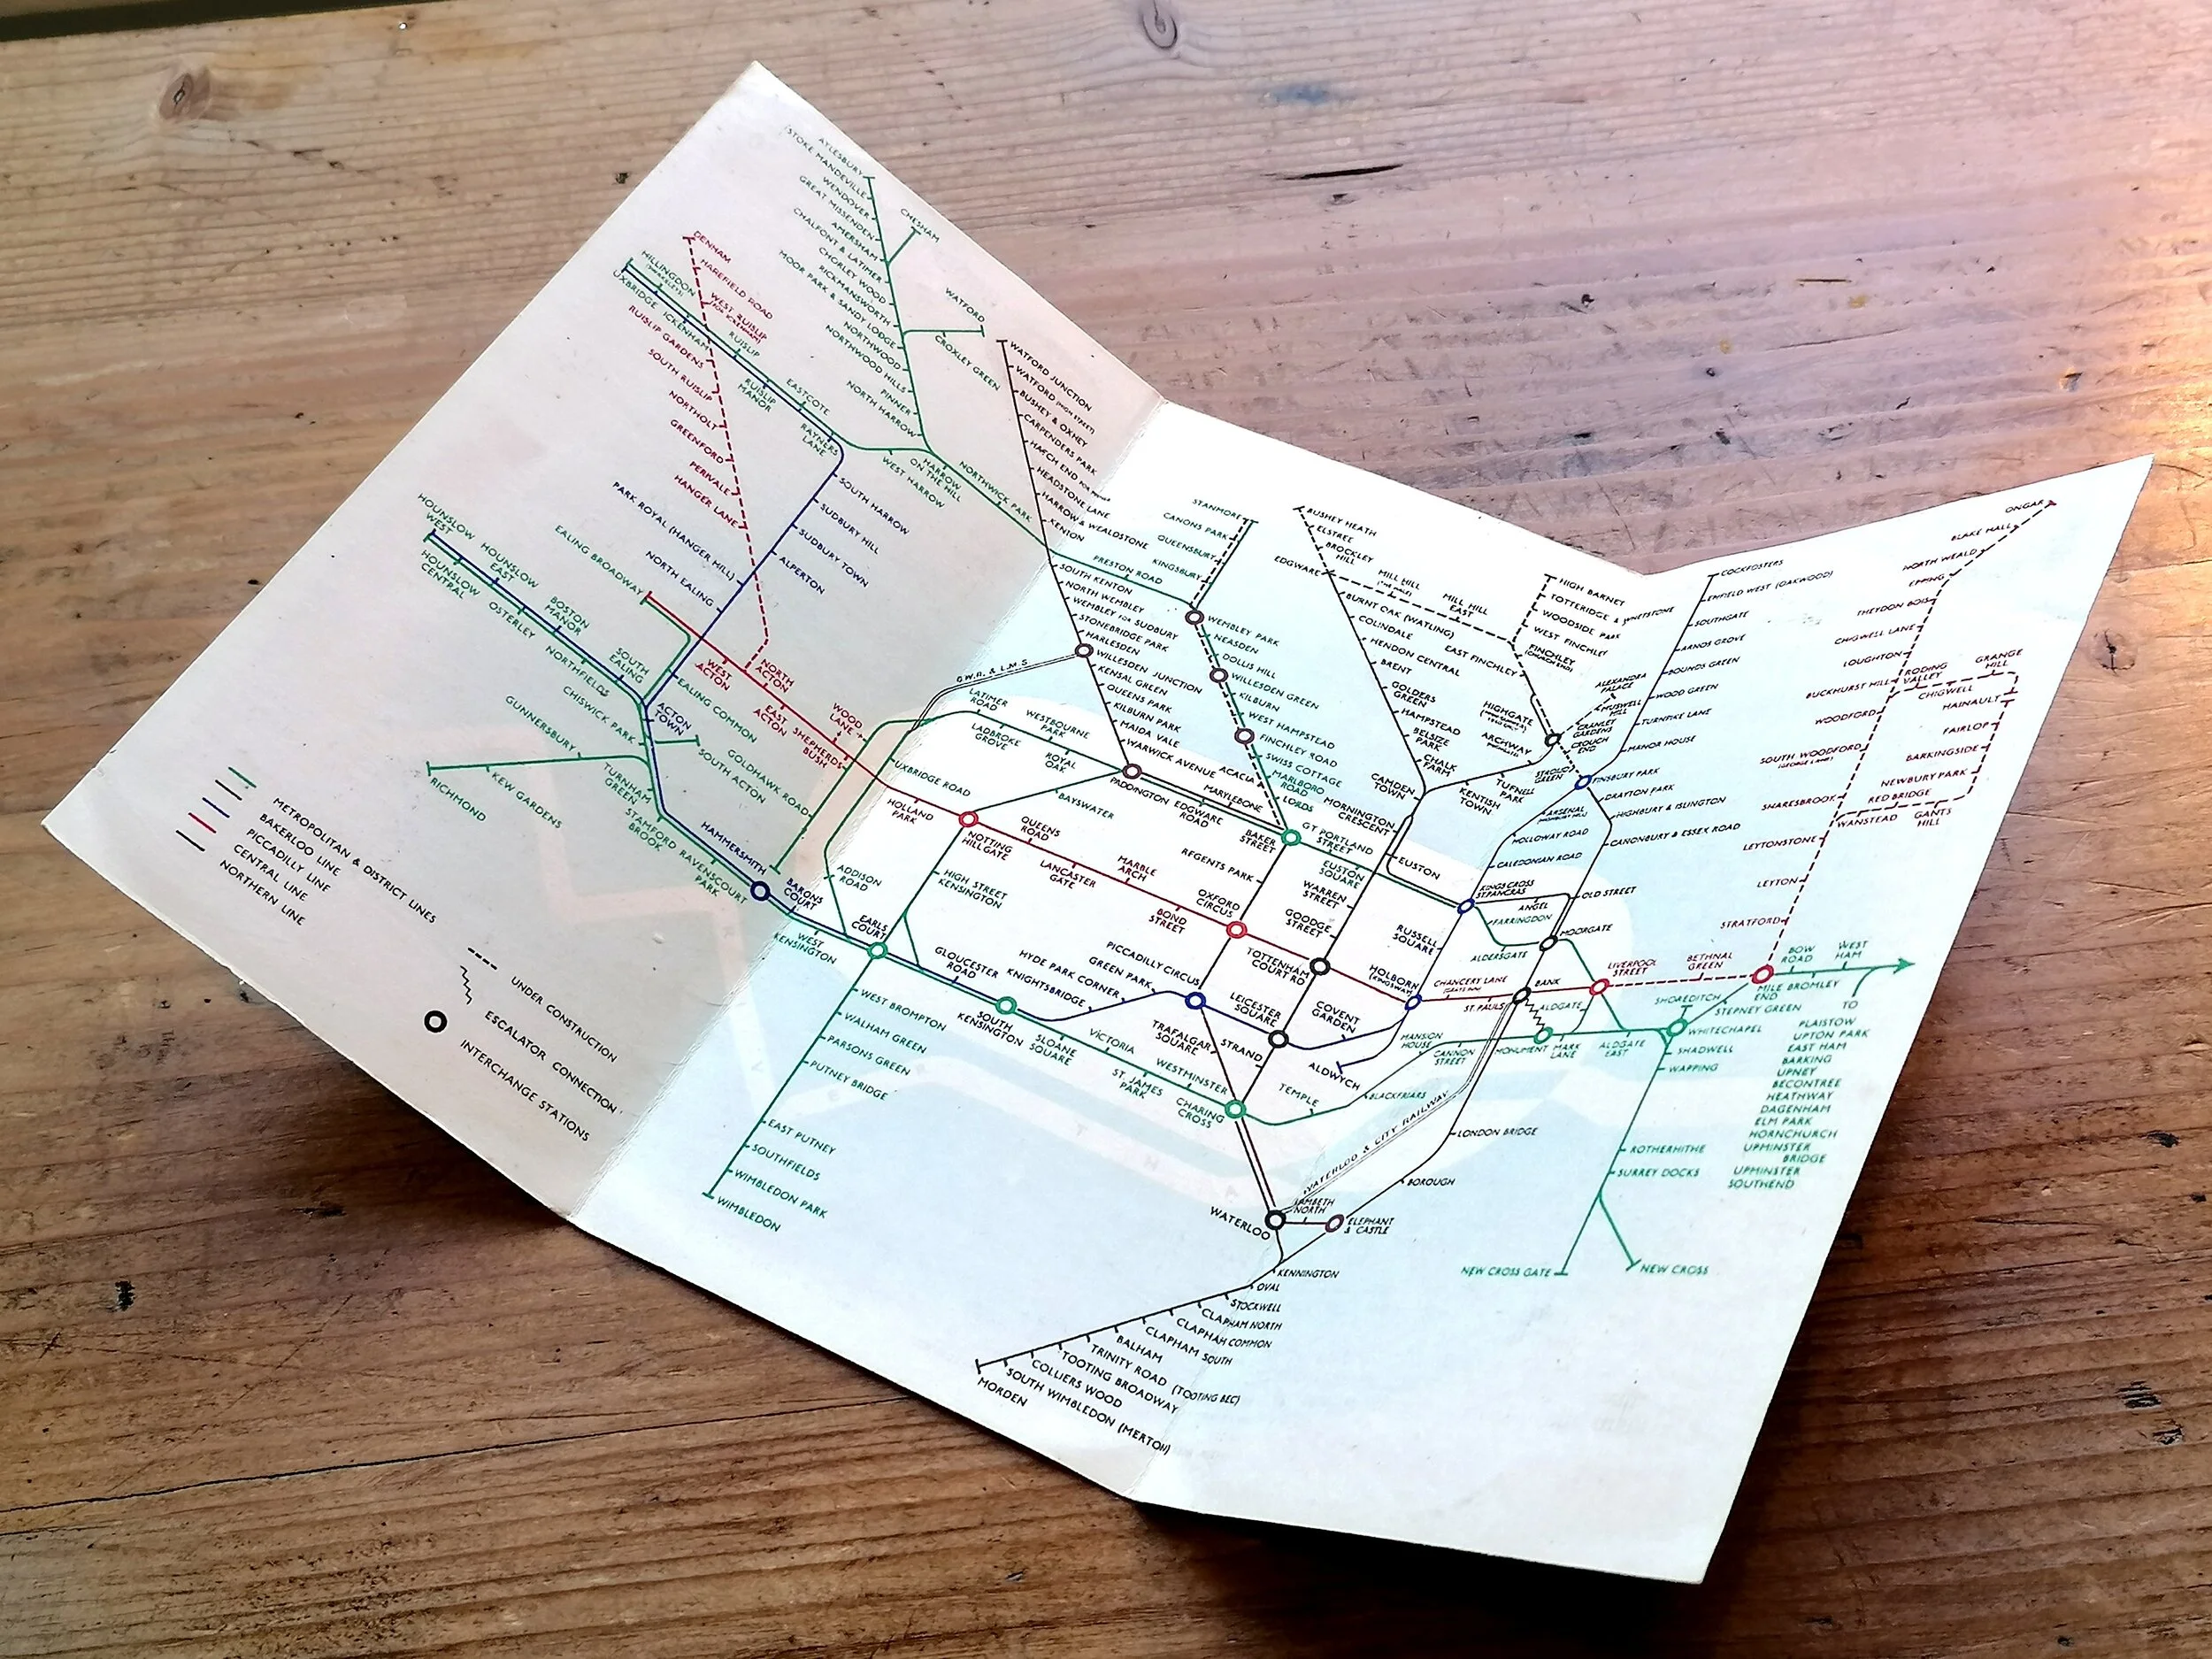 AYLESBURY
STOKE MANDEVILLE
WENDOVER
GREAT MISSENDEN
AMERSHAM
CHALFONT & LATIMER
CHORLEY WOOD
RICKMANSWORTH
MOOR PARK & SANDY LODGE
NORTHWOOD
NORTHWOOD HILLS
PINNER
NORTH HARROW
CHESHAM
WATFORD
CROXLEY GREEN
HARROW
ON THE HILL
WEST HARROW
NORTHWICK PARK
PRESTON ROAD
DENHAM
HAREFIELD ROAD
WEST RUISLIP
(FOR ICKENHAM)
RUISLIP
GARDENS
SOUTH RUISLIP
NORTHOLT
GREENFORD
PERIVALE
HANGER LANE
HILLINGDON
(SWAKELEYS)
UXBRIDGE
ICKENHAM
RUISLIP
RUISLIP
MANOR
EASTCOTE
RAYNERS
LANE
SOUTH HARROW
SUDBURY HILL
SUDBURY TOWN
ALPERTON
PARK ROYAL (HANGER HILL)
NORTH EALING
EALING BROADWAY
WEST
ACTON
NORTH
ACTON
EAST
ACTON
WOOD
LANE
SHEPHERDS
BUSH
HOUNSLOW
WEST
HOUNSLOW
CENTRAL
HOUNSLOW
EAST
OSTERLEY
BOSTON
MANOR
NORTHFIELDS
SOUTH
EALING
EALING COMMON
ACTON
TOWN
CHISWICK PARK
SOUTH ACTON
GUNNERSBURY
KEW GARDENS
RICHMOND
TURNHAM
GREEN
STAMFORD
BROOK
RAVENSCOURT
PARK
HAMMERSMITH
GOLDHAWK ROAD
BARONS
COURT
WEST
KENSINGTON
METROPOLITAN & DISTRICT LINES
BAKERLOO LINE
PICCADILLY LINE
CENTRAL LINE
NORTHERN LINE
UNDER CONSTRUCTION
ESCALATOR CONNECTION
INTERCHANGE STATIONS
WATFORD JUNCTION
WATFORD (HIGH STREET)
BUSHEY & OXHEY
CARPENDERS PARK
HATCH END FOR PINNER
HEADSTONE LANE
HARROW & WEALDSTONE
KENTON
SOUTH KENTON
NORTH WEMBLEY
WEMBLEY FOR SUDBURY
STONEBRIDGE PARK
HARLESDEN
WILLESDEN JUNCTION
KENSAL GREEN
QUEENS PARK
KILBURN PARK
MAIDA VALE
WARWICK AVENUE
G.W.R. & L.M.S
LATIMER
ROAD
LADBROKE
GROVE
WESTBOURNE
PARK
ROYAL
OAK
PADDINGTON
EDGWARE
ROAD
MARYLEBONE
UXBRIDGE ROAD
HOLLAND
PARK
ADDISON
ROAD
BAYSWATER
NOTTING
HILL GATE
QUEENS
ROAD
LANCASTER
GATE
MARBLE
ARCH
BOND
STREET
OXFORD
CIRCUS
HIGH STREET
KENSINGTON
EARLS
COURT
GLOUCESTER
ROAD
SOUTH
KENSINGTON
KNIGHTSBRIDGE
HYDE PARK CORNER
GREEN PARK
PICCADILLY CIRCUS
SLOANE
SQUARE
VICTORIA
ST. JAMES
PARK
WESTMINSTER
CHARING
CROSS
WEST BROMPTON
WALHAM GREEN
PARSONS GREEN
PUTNEY BRIDGE
EAST PUTNEY
SOUTHFIELDS
WIMBLEDON PARK
WIMBLEDON
STANMORE
CANONS PARK
QUEENSBURY
KINGSBURY
WEMBLEY PARK
NEASDEN
DOLLIS HILL
WILLESDEN GREEN
KILBURN
WEST HAMPSTEAD
FINCHLEY ROAD
SWISS COTTAGE
ACACIA
MARLBORO
ROAD
LORDS
BAKER
STREET
REGENTS PARK
GT PORTLAND
STREET
EUSTON
SQUARE
WARREN
STREET
GOODGE
STREET
TOTTENHAM
COURT RD
LEICESTER
SQUARE
TRAFALGAR
SQUARE
STRAND
BUSHEY HEATH
ELSTREE
BROCKLEY
HILL
EDGWARE
MILL HILL
MILL HILL
EAST
BURNT OAK (WATLING)
COLINDALE
HENDON CENTRAL
BRENT
GOLDERS
GREEN
HAMPSTEAD
BELSIZE
PARK
CHALK
FARM
CAMDEN
TOWN
MORNINGTON
CRESCENT
EUSTON
HIGH BARNET
TOTTERIDGE & WHETSTONE
WOODSIDE PARK
WEST FINCHLEY
FINCHLEY
(CHURCH END)
EAST FINCHLEY
HIGHGATE
ARCHWAY
TUFNELL
PARK
KENTISH
TOWN
ALEXANDRA
PALACE
MUSWELL
HILL
CRANLEY
GARDENS
CROUCH
END
STROUD
GREEN
COCKFOSTERS
ENFIELD WEST (OAKWOOD)
SOUTHGATE
ARNOS GROVE
BOUNDS GREEN
WOOD GREEN
TURNPIKE LANE
MANOR HOUSE
FINSBURY PARK
DRAYTON PARK
HIGHBURY & ISLINGTON
CANONBURY & ESSEX ROAD
ARSENAL
HOLLOWAY ROAD
CALEDONIAN ROAD
KINGS CROSS
ST PANCRAS
OLD STREET
ANGEL
FARRINGDON
MOORGATE
ALDERSGATE
RUSSELL
SQUARE
HOLBORN
(KINGSWAY)
CHANCERY LANE
(GRAYS INN)
ST. PAULS
BANK
COVENT
GARDEN
ALDWYCH
LIVERPOOL
STREET
BETHNAL
GREEN
MILE
END
ALDGATE
ALDGATE
EAST
MONUMENT
MARK
LANE
CANNON
STREET
MANSION
HOUSE
BLACKFRIARS
TEMPLE
SHOREDITCH
STEPNEY GREEN
WHITECHAPEL
SHADWELL
WAPPING
ROTHERHITHE
SURREY DOCKS
NEW CROSS GATE
NEW CROSS
BOW
ROAD
BROMLEY
WEST
HAM
TO
PLAISTOW
UPTON PARK
EAST HAM
BARKING
UPNEY
BECONTREE
HEATHWAY
DAGENHAM
ELM PARK
HORNCHURCH
UPMINSTER
BRIDGE
UPMINSTER
SOUTHEND
ONGAR
BLAKE HALL
NORTH WEALD
EPPING
THEYDON BOIS
CHIGWELL LANE
LOUGHTON
BUCKHURST HILL
RODING
VALLEY
CHIGWELL
GRANGE
HILL
HAINAULT
FAIRLOP
BARKINGSIDE
NEWBURY PARK
GANTS
HILL
RED BRIDGE
WANSTEAD
WOODFORD
SOUTH WOODFORD
(GEORGE LANE)
SNARESBROOK
LEYTONSTONE
LEYTON
STRATFORD
WATERLOO & CITY RAILWAY
LONDON BRIDGE
BOROUGH
WATERLOO
LAMBETH
NORTH
ELEPHANT
& CASTLE
KENNINGTON
OVAL
STOCKWELL
CLAPHAM NORTH
CLAPHAM COMMON
CLAPHAM SOUTH
BALHAM
TRINITY ROAD (TOOTING BEC)
TOOTING BROADWAY
COLLIERS WOOD
SOUTH WIMBLEDON (MERTON)
MORDEN